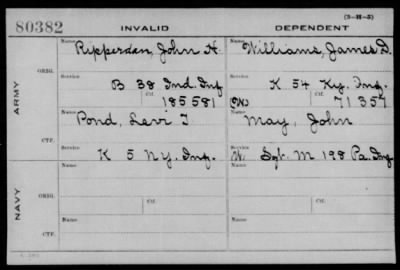 (3-H-5)
80382 INVALID DEPENDENT
Name Ripperdan, John H. Name Williams, James D.
ORIG.
Service B 38 Ind. Inf Service K 54 Ky. Inf.
Ctf. 185581 (W) Ctf. 71357
ARMY
Name Pond, Levi T Name May, John
CTF.
Service K 5 N.Y. Inf. Service W. Sgt. M 198 Pa. Inf
Name Name
ORIG.
Service Ctf. Service Ctf.
NAVY
Name Name
CTF.
Service Service